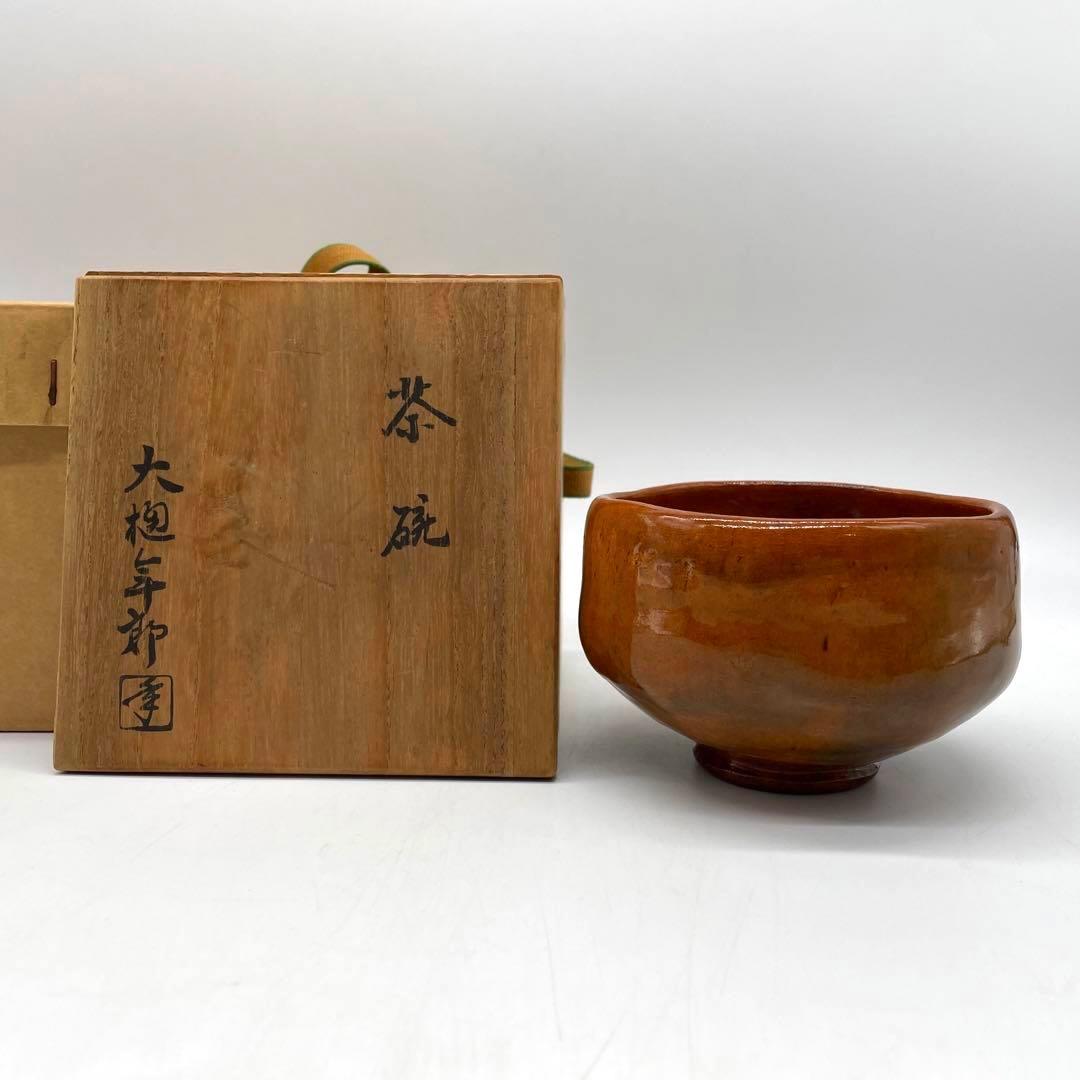 茶碗
大樋年郎